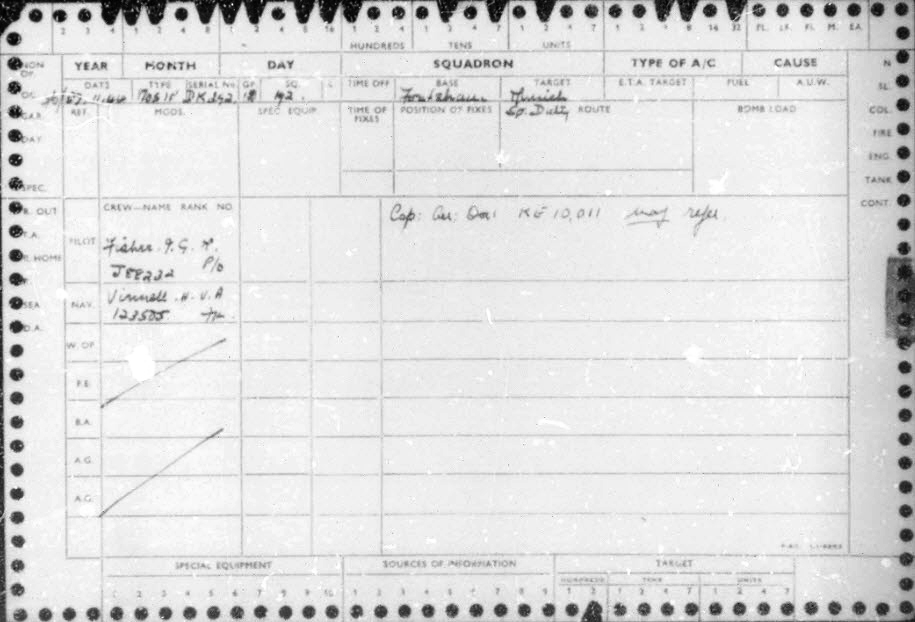 2 3 4 1 2 4 8 1 2 4 8 16 1 2 4 7 1 2 4 7 1 2 4 7 1 2 4 8 16 32 PL. LF. FI. M. EA.
HUNDREDS TENS UNITS
NON OP. YEAR MONTH DAY SQUADRON TYPE OF A/C CAUSE N
DATE TYPE SERIAL No. GP. SQ. L TIME OFF BASE TARGET E.T.A. TARGET FUEL A.U.W. SL.
11.44 MOS IV DK 292 192 Foulsham Munich
GAR. REF. MODS. SPEC. EQUIP. TIME OF FIXES POSITION OF FIXES Sp. Duty ROUTE BOMB LOAD COL.
DAY FIRE
ENG.
SPEC. TANK
R. OUT CREW—NAME RANK NO. CONT.
Cap: Ger: Doc: KE 10,011 may refer.
T.A.
R. HOME PILOT Fisher. J. G. P/O
J88232
SEA NAV. Vinnell. H. V. A
123505
D.A.
W. OP.
F.E.
B.A.
A.G.
A.G.
SPECIAL EQUIPMENT SOURCES OF INFORMATION TARGET
HUNDREDS TENS UNITS
1 2 3 4 5 6 7 8 9 10 1 2 3 4 5 6 7 8 9 1 2 4 7 1 2 4 7 1 2 4 7